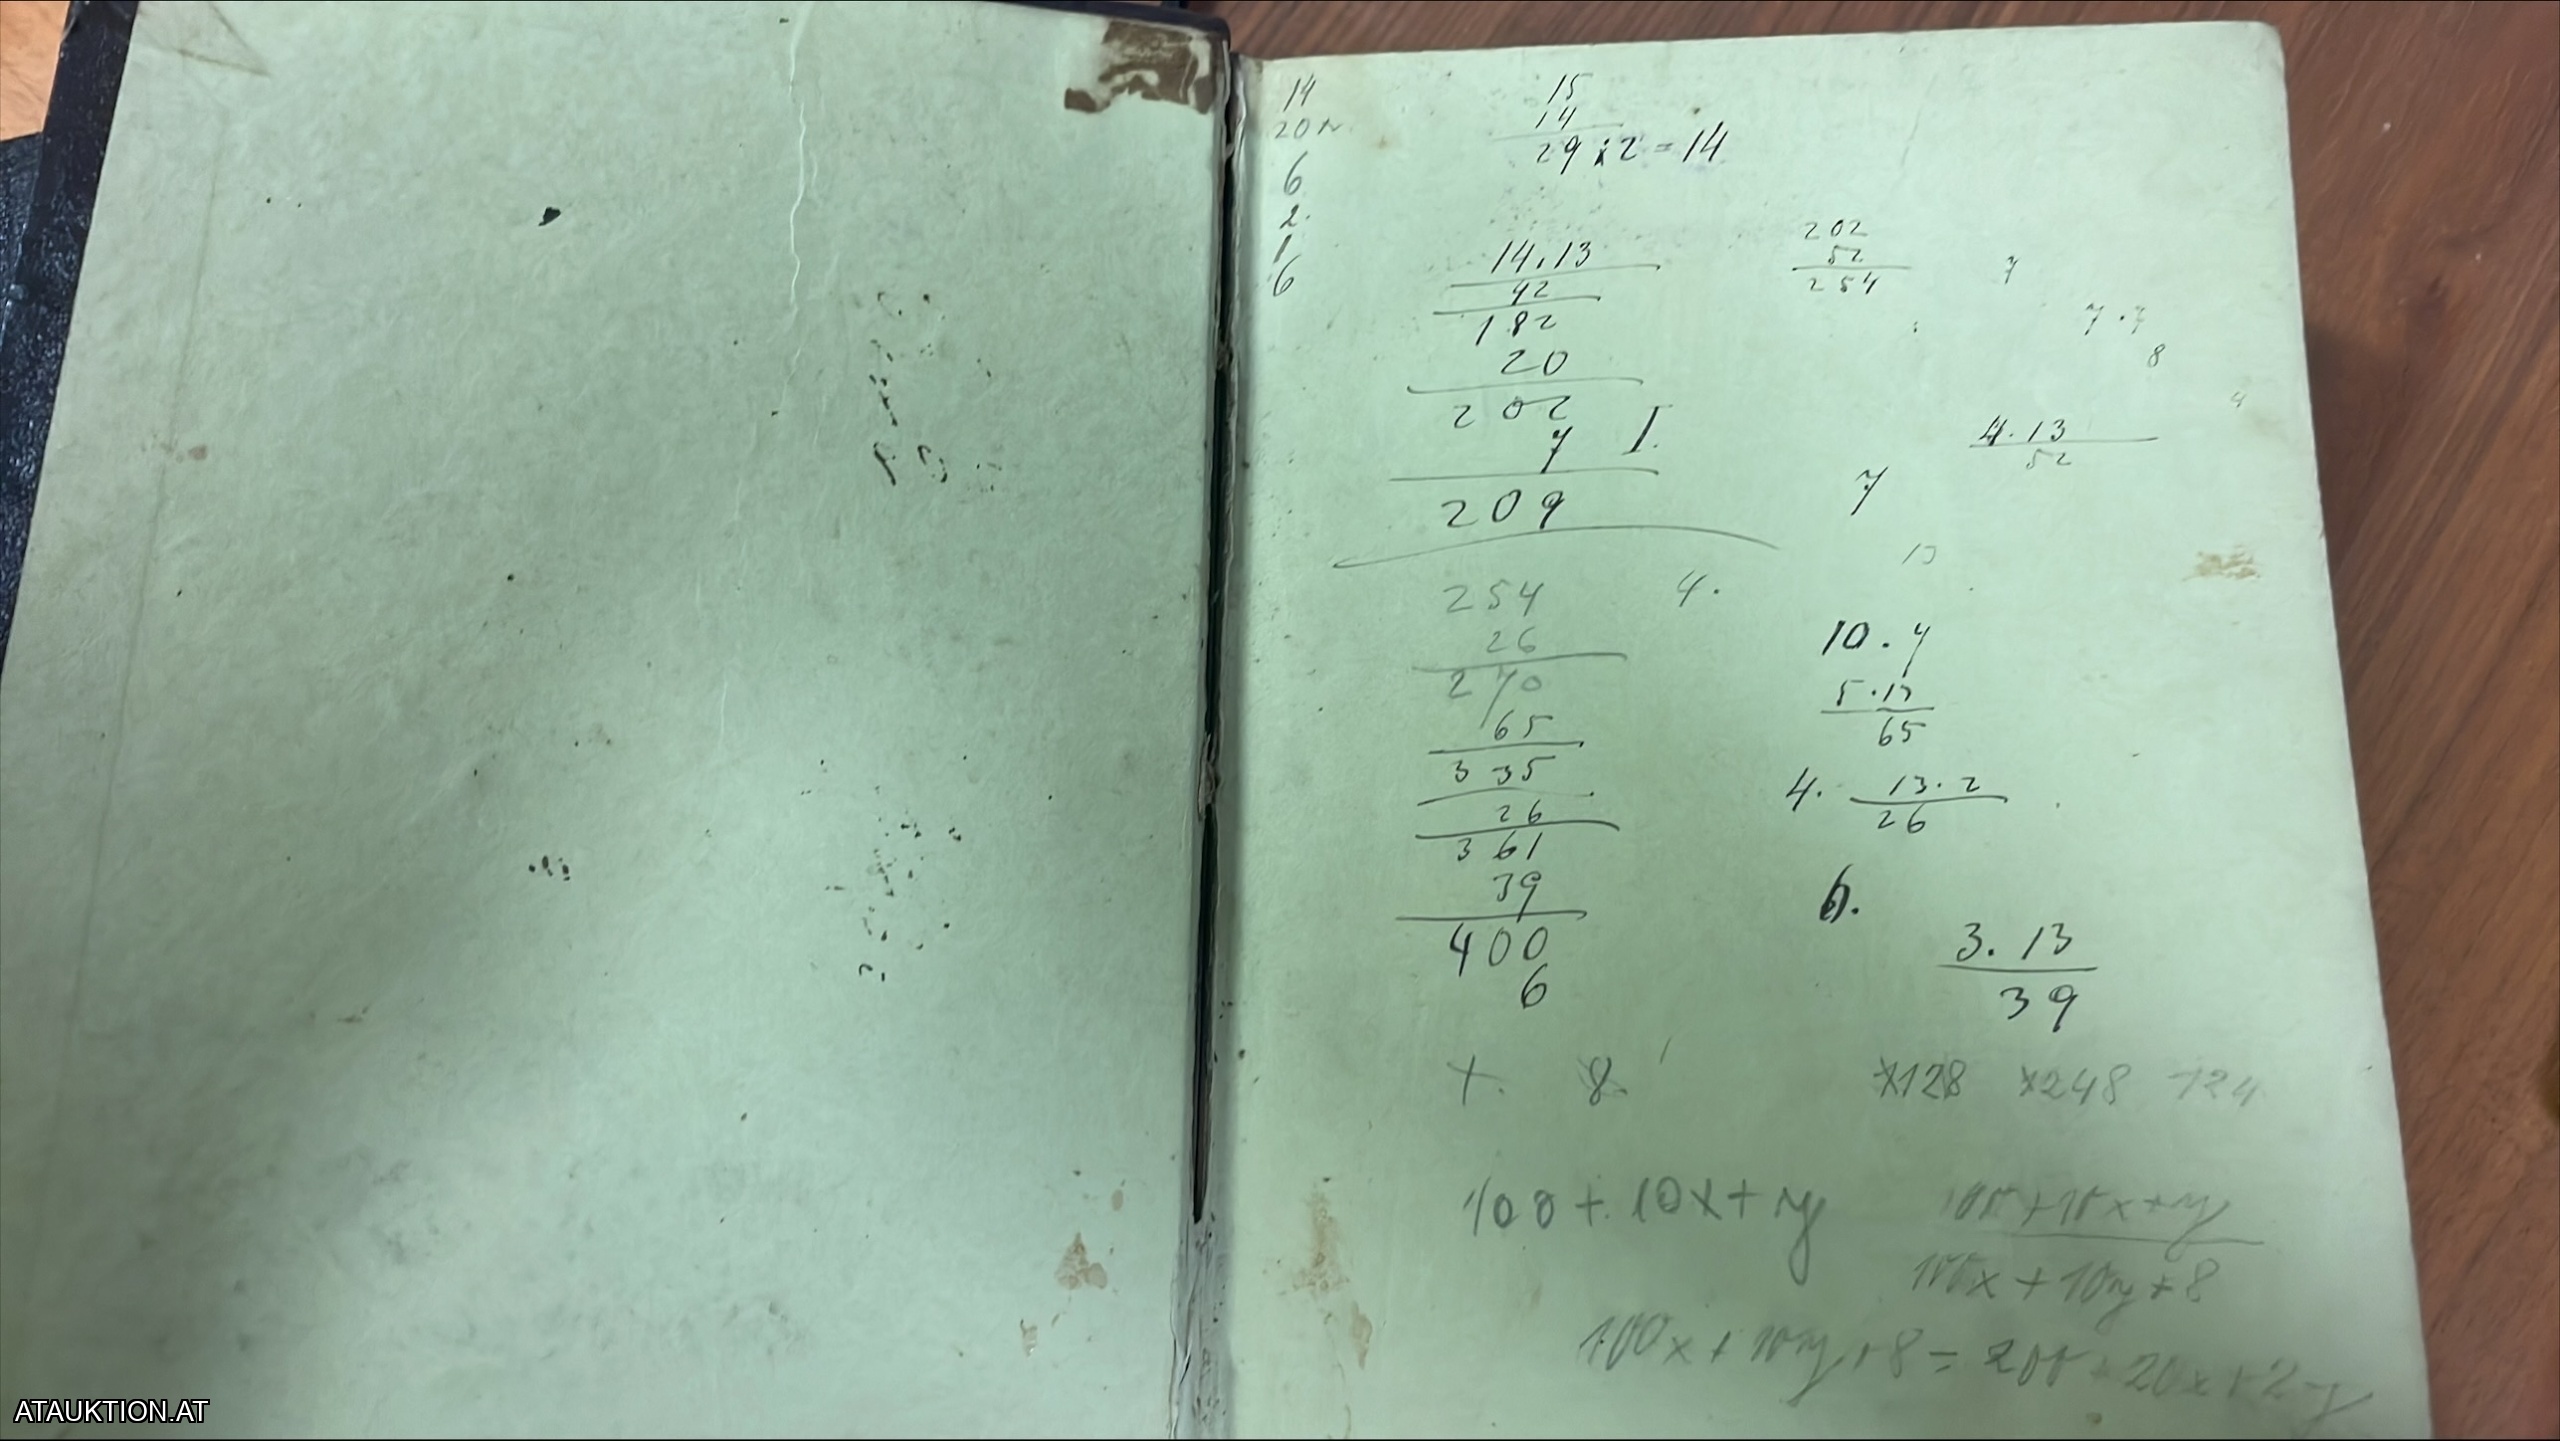 14
20
6
2.
1
6
15
14
29 : 2 = 14
14.13
42
182
20
202
7 I.
209
202
52
254
7
7.7
8
4
4.13
52
7
13
254 4.
26
270
65
335
26
361
39
400
6
10.4
5.13
65
4. 13.2
26
6.
3.13
39
8.
x128 x248 124
100 + 10x + y
100 + 10x + y
100x + 10y + 8
100x + 10y + 8 = 200 + 20x + 2y
ATAUKTION.AT